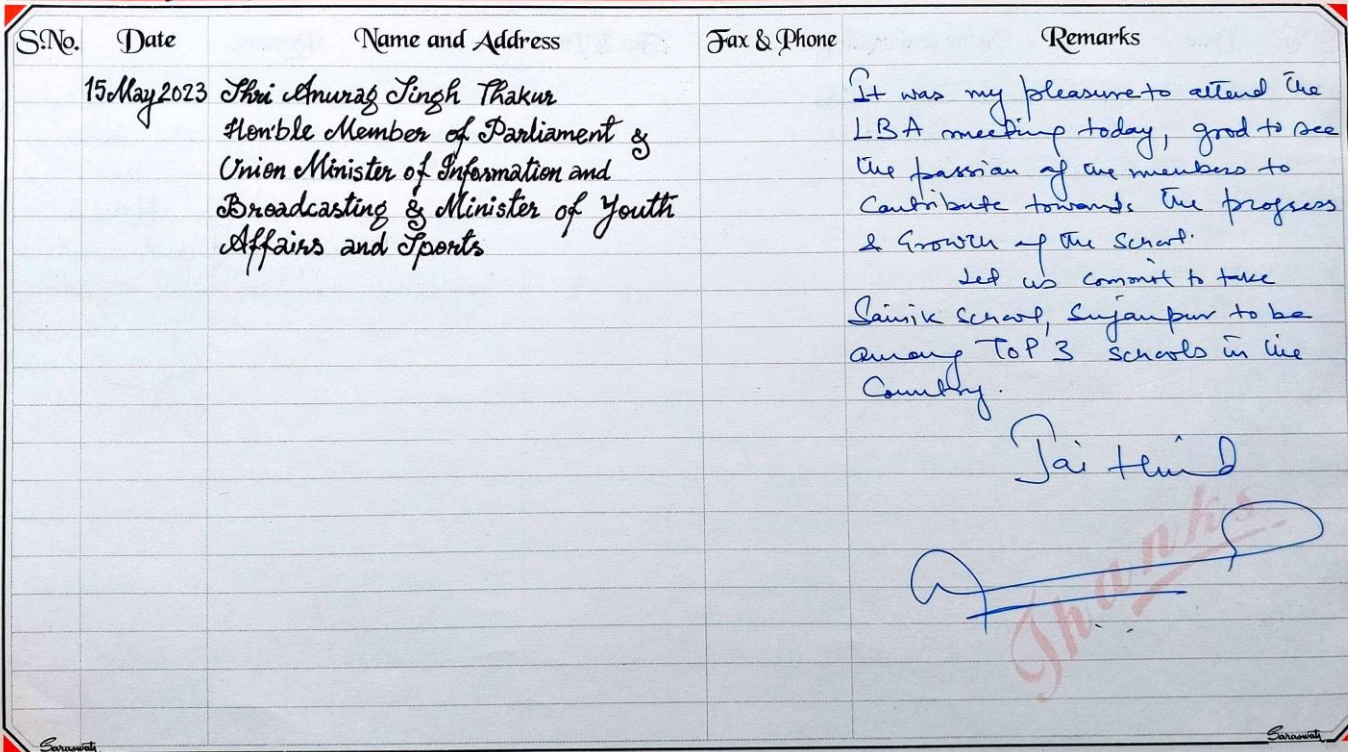 S.No. Date Name and Address Fax & Phone Remarks
15 May 2023 Shri Anurag Singh Thakur
Hon'ble Member of Parliament &
Union Minister of Information and
Broadcasting & Minister of Youth
Affairs and Sports
It was my pleasure to attend the
LBA meeting today, good to see
the passion of the members to
Contribute towards the progress
& Growth of the School.
Let us commit to take
Sainik School, Sujanpur to be
among TOP 3 schools in the
Country.
Jai Hind
Thanks
Saraswati
Saraswati